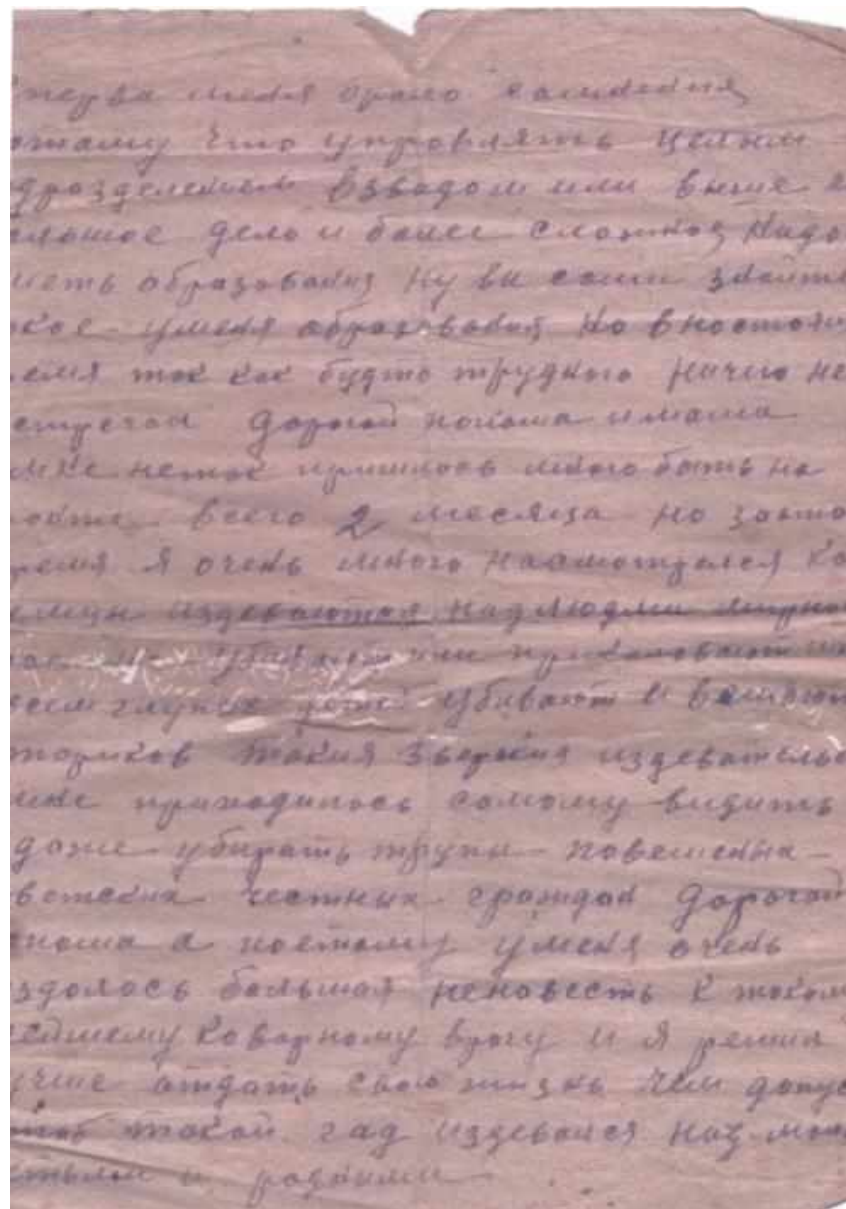 сперва меня брало сомнения
потому что упровлять целым
одразделением взводом или выше
альшое дело и более сложное Надо
иметь образования Ну вы сами знаите
кое уменя образования но внастоящ
емя так как будто трудного ничего не
встречал Дорогой папаша и мама
мне нетак пришлось много быть на
всего 2 месяца но заэто
ремя я очень много насмотрелся Ка
емцы издеваются над людми мирно
убивают или
всем глупых дете убивают и вешают
ториков такия зверския издевательс
мне приходилось самому видить
даже убирать трупы повешеных
ветских честных граждан Дорогой
паша а поетому уменя очень
здолось большая неновесть к таком
ейшему коварному врагу и я решил
учше отдать свою жизнь чем допус
чтоб такой гад издевался над мои
етьми и родными